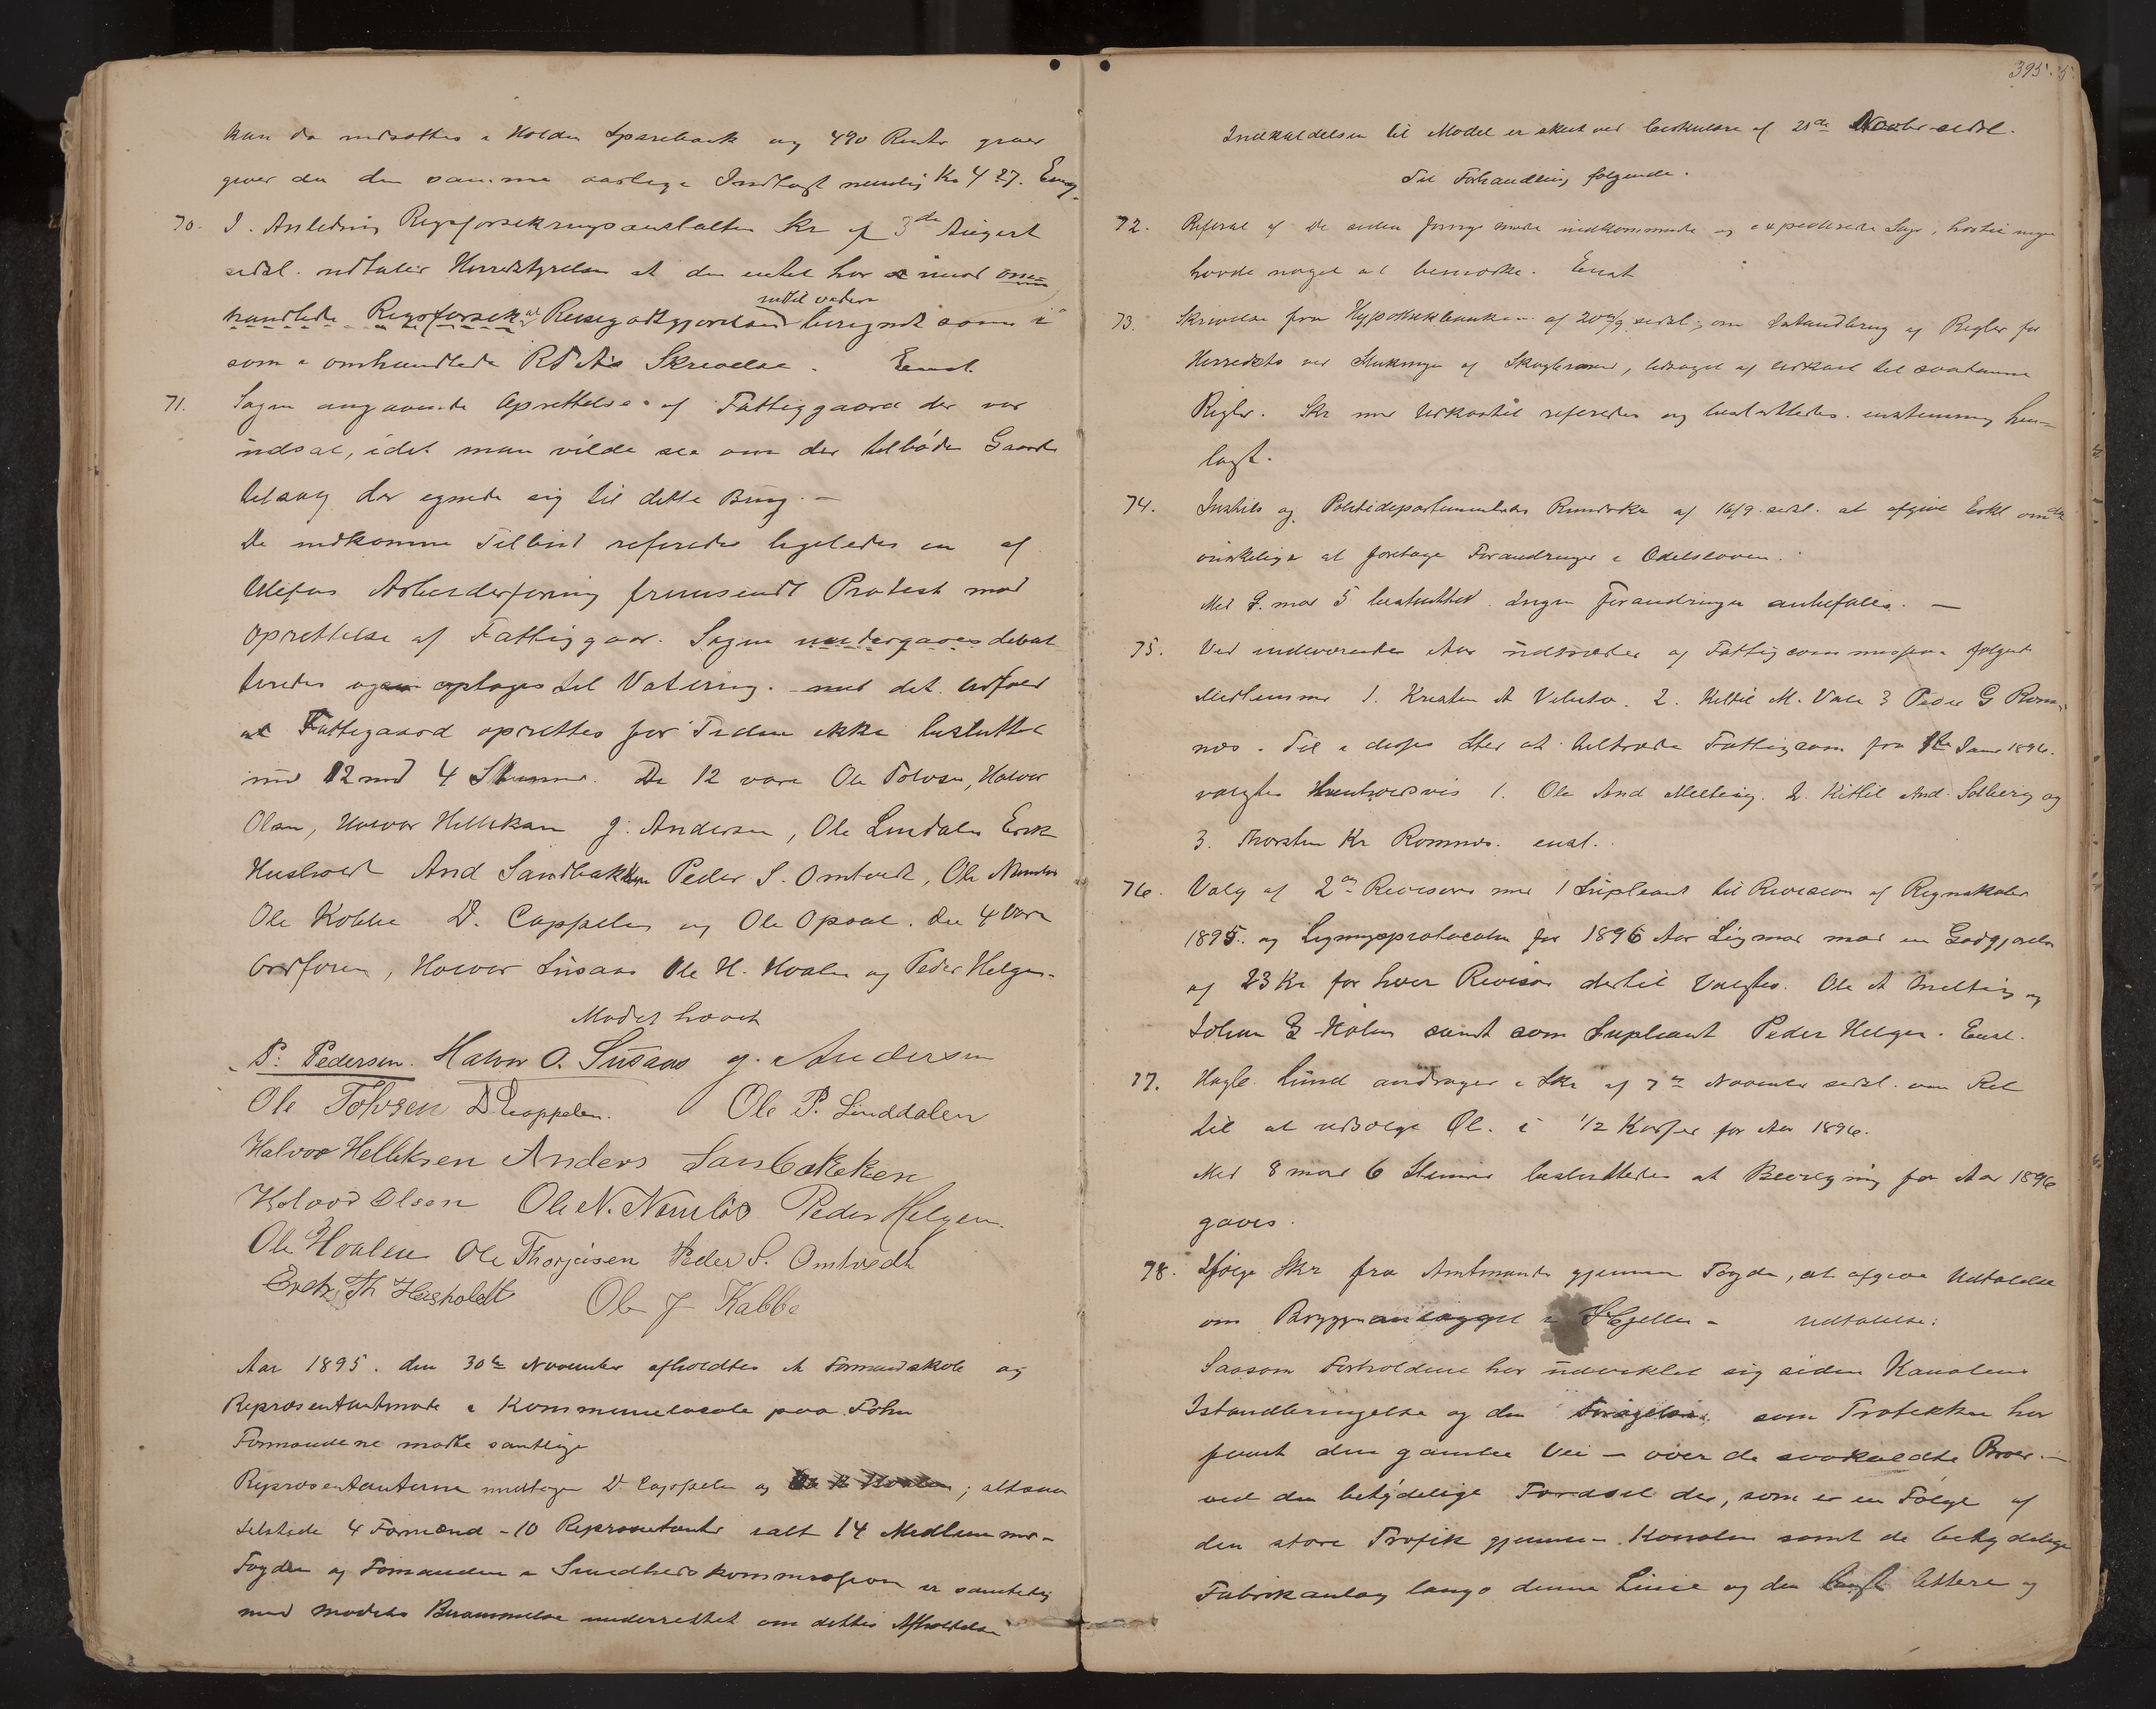 kan da indsættes i Holden Sparebank og 490 Renter
giver da den samme aarlige Indtægt nemlig Kr 427. Enst.
70. I Anledning Rigsforsekringsanstalten Skr af 3de August
sidsl. udtaler Herredstyrelsen at den intet har imod om=
handlede Rigsforsek Reisegodtgjørelse indtil videre beregnet som i
som i omhandlede Skrivelse. Enst.
71. Sagen angaaende Oprettelse af Fattiggaard der var
udsat, idet man vilde see om der tilbødes Gaarde
tilsalg der egnede sig til dette Brug. —
De indkomne Tilbud refereredes ligeledes en af
Ulefos Arbeiderforening fremsendt Protest mod
Oprettelse af Fattiggaar. Sagen undergaves debat
teredes og optoges til Votering med det Udfald
at Fattigaard oprettes for Tiden ikke besluttet
med 12 mod 4 Stemmer. De 12 vare Ole Tolvsen, Halvor
Olsen, Halvor Helliksen G. Andersen, Ole Lindalen Erik
Husholdt And Sandbakken Peder S. Omtvedt, Ole Namløs
Ole Kobbe D. Cappelen og Ole Opsal. De 4 Vare
Ordføren, Halvor Susaas Ole H. Hvalen og Peder Helgen.
Mødet hævet
P. Pedersen. Halvor O. Susaas G. Andersen
Ole Tolvsen D Cappelen. Ole P. Linddalen
Halvor Helliksen Anders Sanbakken
Halvor Olsen Ole N. Namløs Peder Helgen.
Ole Hvalen Ole Thorjusen Peder S. Omtvedt
Erik Th Husholdt Ole J Kabbe
Aar 1895. den 30te November afholdtes et Formandskabs og
Repræsentantmøde i Kommunelocale paa Folm
Formændene mødte samtlige
Repræsentanterne undtagen D Cappelen og ; altsaa
tilstede 4 Formænd - 10 Repræsentanter ialt 14 Medlemmer -
Fogden og Formanden i Sundhedskommissionen er samtidig
med Mødets Berammelse underrettet om dettes Afholdelse
395.
Indkaldelsen til Mødet er skeet ved Cirkulære af 21de Novbr sidsl.
Til Forhandling følgende.
72. Referat af De siden forrige møde indkommede og expederede Sager, hvortil ingen
havde noget at bemærke. Enst
73. Skrivelse fra Hypothekbanken af 20/9 sidsl; om Istandbring af Regler for
Herredets ved af Skoglaaner, ledsaget af Udkast til saadanne
Regler. Skr med Udkastet refereredes og besluttedes enstemmig hen=
lagt.
74. Justits og Politidepartementets Rundskr af 16/9 sidsl. at afgive Erkl om det
ønskelige at foretage Forandringer i Odelsloven.
Med 9 mod 5 besluttet. Ingen Forandringer anbefales. —
75. Ved indeværende Aar udtræder af Fattigcommissionen følgende
Medlemmer 1. Kresten A Vibeto. 2. Kittil M. Vale 3 Peder G Rom=
nes. Til i disses Sted at tiltræde Fattigcom fra 1te Janr 1896.
valgtes Henholdsvis 1. Ole And Melteig. 2. Kittil And. Solberg og
3. Thorsten Kr Romnes. enst.
76. Valg af 2de Revisorer med 1 Supleant til Revision af Regnskaber
1895. og Ligningsprotocolen for 1896 Aar Ligmod mod en Godtgjørelse
af 23 Kr for hver Revisor dertil Valgtes. Ole A Melteig og
Johan G Holm samt som Supleant Peder Helgen. Enst.
77. Høgb. Lund andrager i Skr af 7de November sidsl. om Ret
til at udsælge Øl. i 1/2 Korfer for Aar 1896.
Med 8 mod 6 Stemmer besluttedes at Bevilgning for Aar 1896
gaves.
78. Ifølge Skr fra Amtmanden gjennem Fogden, at afgive Udtalelse
om Bryggeanlægget i Hjellen - Udtalelse:
Saasom Forholdene har udviklet sig siden Kanalens
Istandbringelse og den Forøgelse, som Trafikken har
faaet den gamle Vei - over de saakaldte Broer. -
ved den betydelige Færdsel der, som er en Følge af
den store Trafik gjennem Kanalen samt de betydelige
Fabrikanlæg langs denne Linie og den lettere og